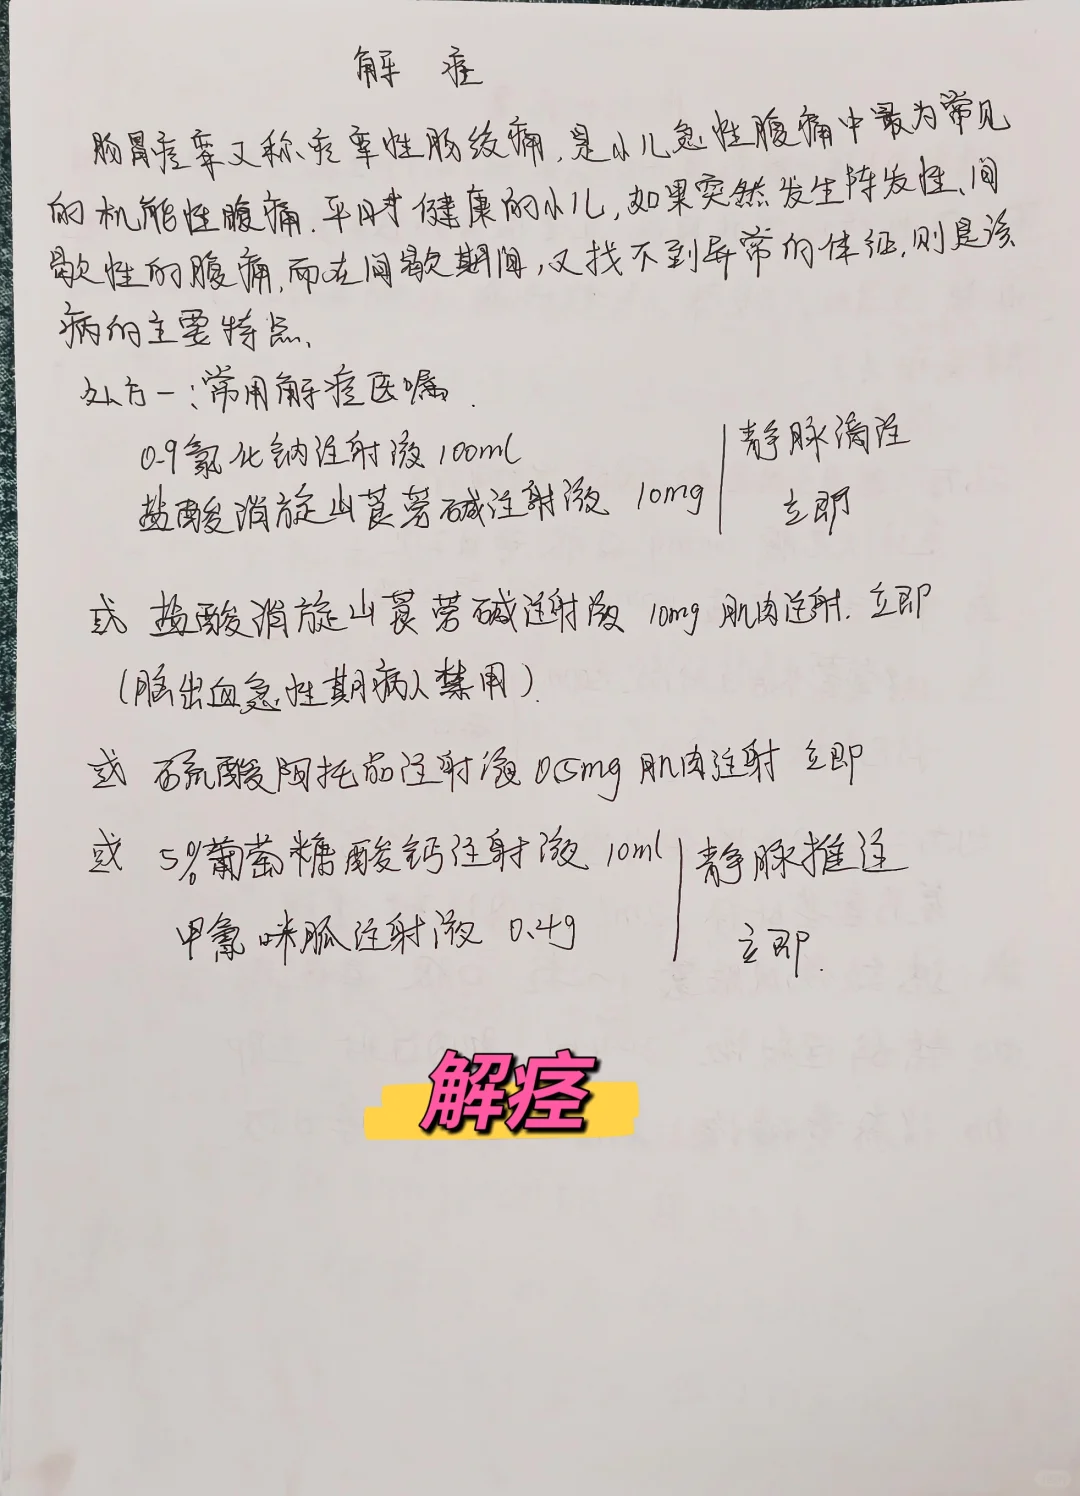 解痉
肠胃痉挛又称痉挛性肠绞痛,是小儿急性腹痛中最为常见
的机能性腹痛.平时健康的小儿,如果突然发生阵发性、间
歇性的腹痛,而在间歇期间,又找不到异常的体征,则是该
病的主要特点、
处方一:常用解痉医嘱.
0.9氯化钠注射液 100ml
静脉滴注
盐酸消旋山莨菪碱注射液 10mg
立即
或 盐酸消旋山莨菪碱注射液 10mg 肌肉注射. 立即
(脑出血急性期病人禁用).
或 硫酸阿托品注射液 0.5mg 肌肉注射 立即
或 5%葡萄糖酸钙注射液 10ml
静脉推注
甲氰咪胍注射液 0.4g
立即.
解痉